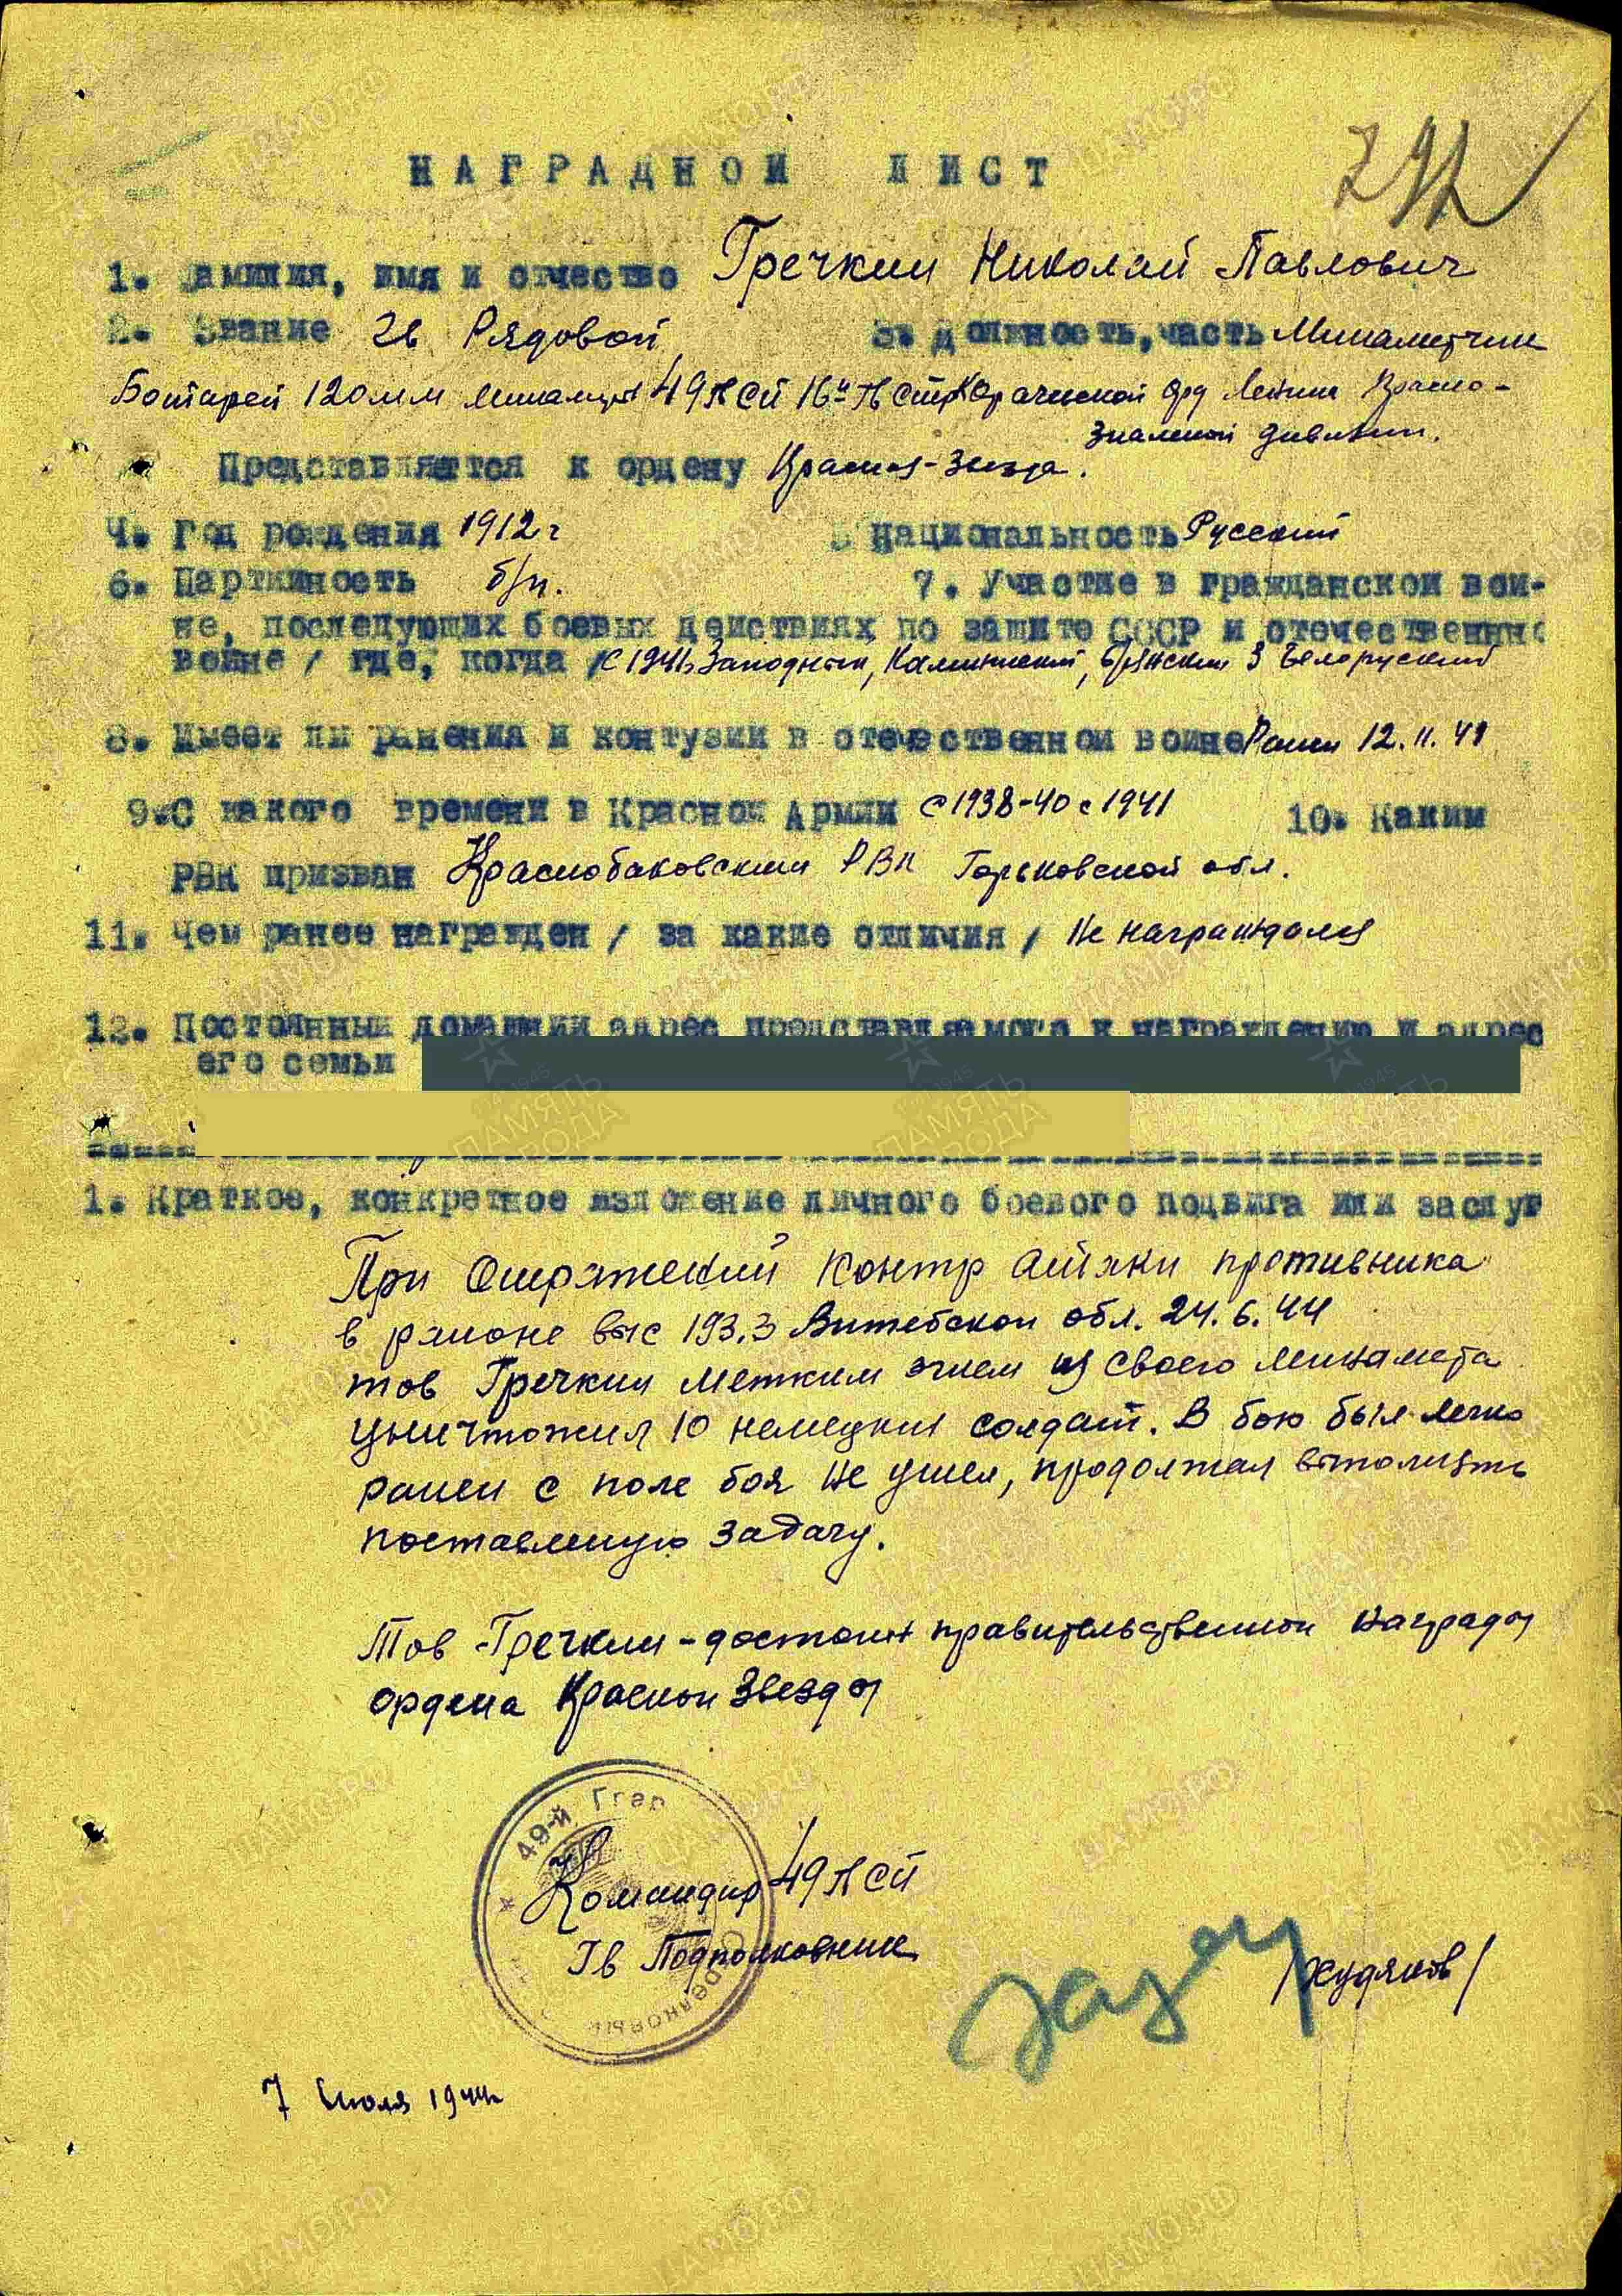 792
НАГРАДНОЙ ЛИСТ
1. Фамилия, имя и отчество Гречкин Николай Павлович
2. Звание Гв Рядовой 3. Должность, часть Минаметчик
Батареи 120 мм минамет 49 ГВ СП 16й ГВ Стр Карачевской орд Ленина Красно-
знаменной дивизии.
Представляется к ордену Красная-Звезда.
4. Год рождения 1912 г 5 Национальность Русский
6. Партийность б/п. 7. Участие в гражданской вой-
не, последующих боевых действиях по защите СССР и отечественной
войне / где, когда / с 1941г Западный, Калининский, Брянский 3 Белоруский
8. Имеет ли ранения и контузии в отечественной войне Ранен 12.11.41
9. С какого времени в Красной Армии с 1938-40 с 1941 10. Каким
РВК призван Краснобаковским РВК Горьковской обл.
11. Чем ранее награжден / за какие отличия / Не награждался
12. Постоянный домашний адрес представляемого к награждению и адрес
его семьи
1. Краткое, конкретное изложение личного боевого подвига или заслуг
При Отражений контр Атаки противника
в районе выс 193.3 Витебской обл. 24.6.44
тов Гречкин метким огнем из своего минамета
уничтожил 10 немецких солдат. В бою был легко
ранен с поле боя не ушел, продолжал выполнять
поставленую задачу.
Тов-Гречкин-достоин правительственной награды
ордена Красной Звезды
49-й Гвар
Командир 49 ГВ СП
Гв Подполковник /Худяков/
7 Июля 1944г